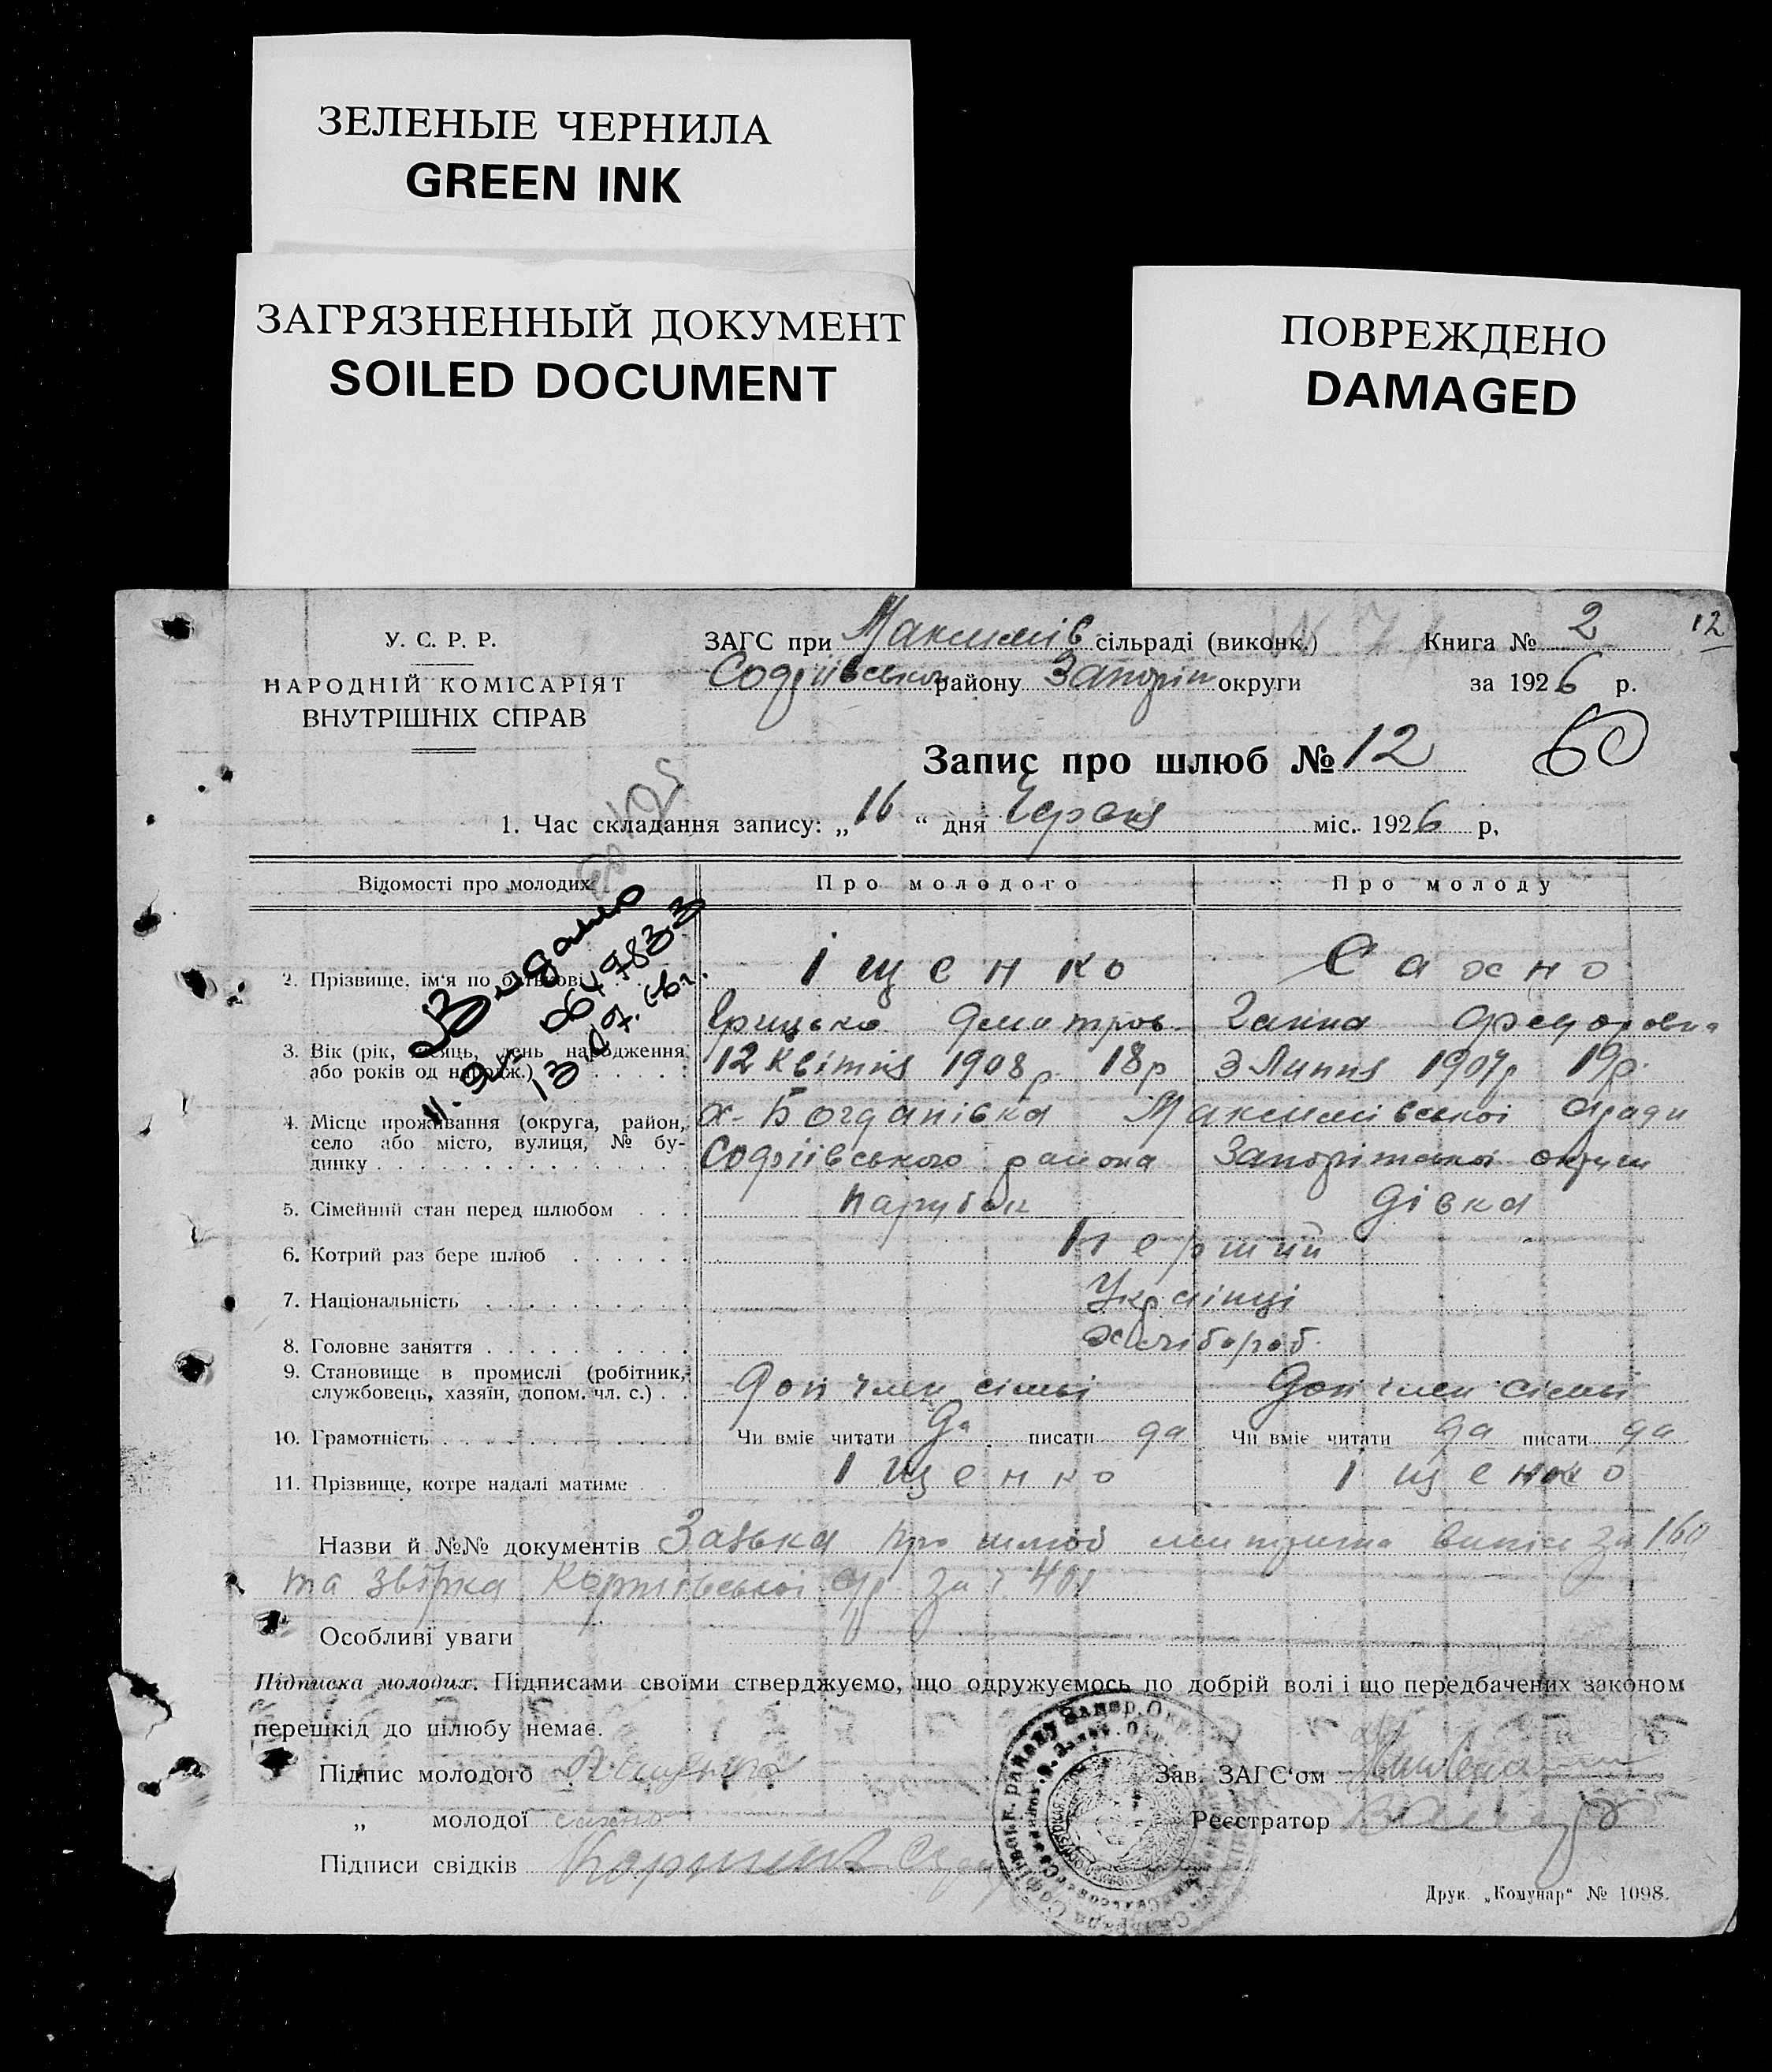 ЗЕЛЕНЫЕ ЧЕРНИЛА
GREEN INK
ЗАГРЯЗНЕННЫЙ ДОКУМЕНТ
SOILED DOCUMENT
ПОВРЕЖДЕНО
DAMAGED
12
У. С. Р. Р.
НАРОДНІЙ КОМІСАРІЯТ
ВНУТРІШНІХ СПРАВ
ЗАГС при Максимів сільраді (виконк.) Книга № 2
Софіівського району Запоріж округи за 1926 р.
Запис про шлюб № 12 60
1. Час складання запису: „16“ дня Червня міс. 1926 р.
Відомості про молодих Про молодого Про молоду
Видано
064783
13
2. Прізвище, ім'я по батькові Іщенко Сахно
Грицько Дмитров. Ганна Федоровна
3. Вік (рік, місяць, день народження або років од народж.) 12 Квітня 1908 р 18р 3 Липня 1907р 19р.
4. Місце проживання (округа, район, х. Богданівка Максимівської с/ради
село або місто, вулиця, № бу- Софіівського района Запоріжської округи
динку
5. Сімейний стан перед шлюбом парубок дівка
6. Котрий раз бере шлюб перший
7. Національність Українці
8. Головне заняття хлібороб
9. Становище в промислі (робітник, службовець, хазяїн, допом. чл. с.) Доп член сімьі Доп член сімьі
10. Грамотність Чи вміє читати да писати да Чи вміє читати да писати да
11. Прізвище, котре надалі матиме Іщенко Іщенко
Назви й №№ документів Заява про шлюб метрична випись за 160
та звірка
Особливі уваги
Підписка молодих. Підписами своїми стверджуємо, що одружуємось по добрій волі і що передбачених законом
перешкід до шлюбу немає.
Підпис молодого
Зав. ЗАГС'ом
„ молодої сахно
Реєстратор
Підписи свідків
Друк. „Комунар“ № 1098.